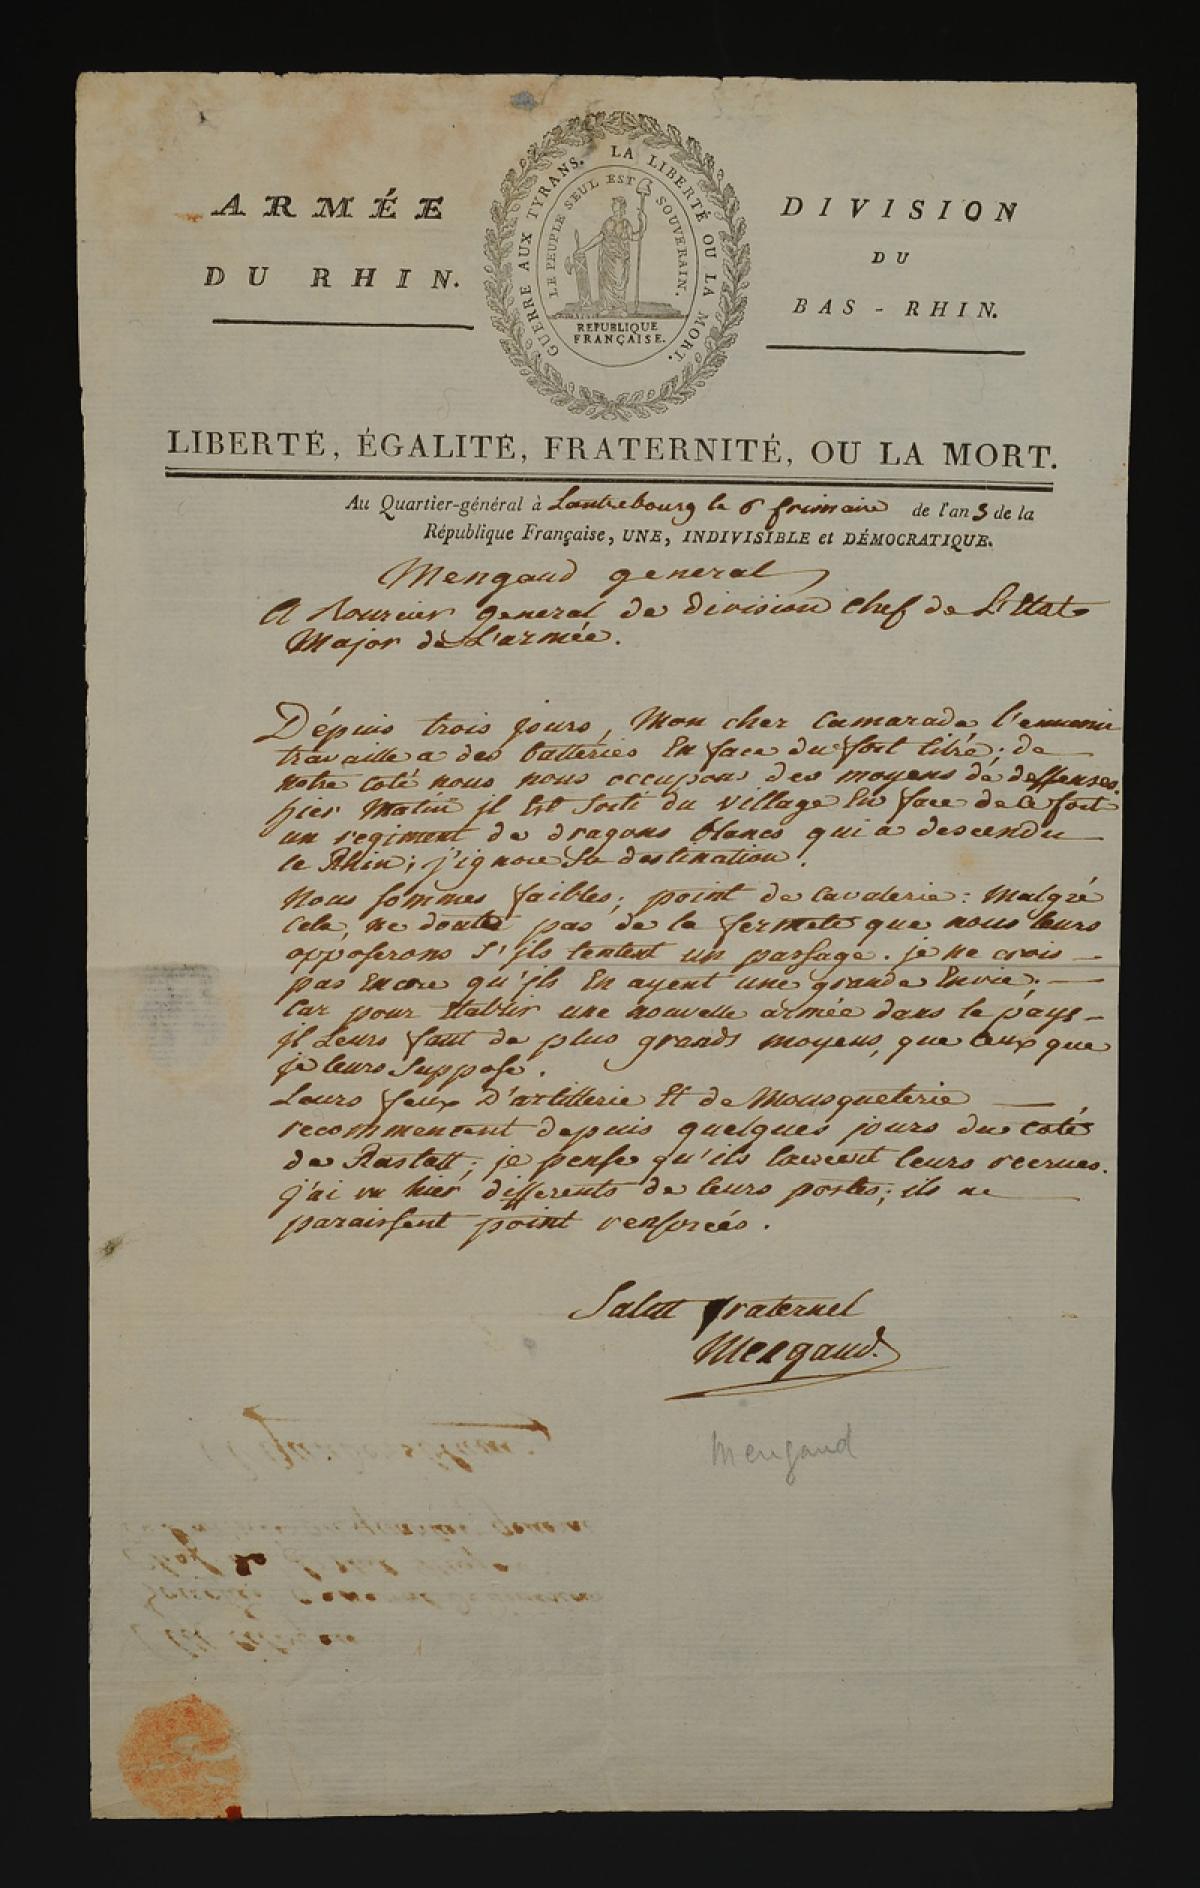 ARMÉE
DU RHIN.
GUERRE AUX TYRANS. LA LIBERTÉ OU LA MORT.
LE PEUPLE SEUL EST SOUVERAIN.
REPUBLIQUE
FRANÇAISE.
DIVISION
DU
BAS-RHIN.
LIBERTÉ, ÉGALITÉ, FRATERNITÉ, OU LA MORT.
Au Quartier-général à Lautrebourg le 6 frimaire de l'an 3 de la
République Française, UNE, INDIVISIBLE et DÉMOCRATIQUE.
Mengaud general
A Bourcier general de division chef de L'Etat
Major de L'armée.
Dépuis trois jours, Mon cher Camarade l'ennemi
travaille a des batteries En face du fort libre; de
notre coté nous nous occupons des moyens de deffenses.
hier Matin il Est Sorti du village En face de ce fort
un regiment de dragons blancs qui a descendu
le Rhin; j'ignore Sa destination.
Nous sommes faibles; point de cavalerie: Malgré
cela, ne doute pas de la fermeté que nous leurs
opposerons S'ils tentent un passage. je ne crois
pas Encore qu'ils En ayent une grande Envie.
Car pour Etablir une nouvelle armée dans le pays
il Leurs faut de plus grands moyens, que ceux que
je leurs Suppose.
Leurs feux D'artillerie Et de Mousqueterie
recommencent depuis quelques jours du coté
de Rastatt; je pense qu'ils Exercent leurs recrues.
j'ai vu hier differents de leurs postes; ils ne
paraissent point renforcés.
Salut fraternel
Mengaud.
Mengaud